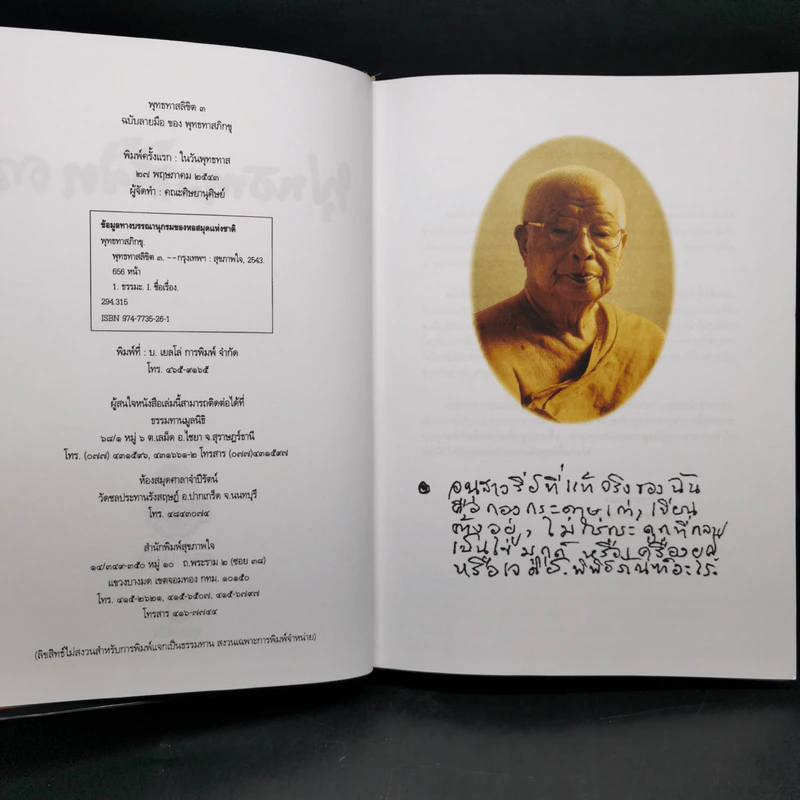 พุทธทาสลิขิต ๓
ฉบับลายมือ ของ พุทธทาสภิกขุ
พิมพ์ครั้งแรก : ในวันพุทธทาส
๒๗ พฤษภาคม ๒๕๔๓
ผู้จัดทำ : คณะศิษยานุศิษย์
ข้อมูลทางบรรณานุกรมของหอสมุดแห่งชาติ
พุทธทาสภิกขุ.
พุทธทาสลิขิต ๓. --กรุงเทพฯ : สุขภาพใจ, 2543.
656 หน้า
1. ธรรมะ. I. ชื่อเรื่อง.
294.315
ISBN 974-7735-26-1
พิมพ์ที่ : บ. เยลโล่ การพิมพ์ จำกัด
โทร. ๔๖๕-๙๑๖๕
ผู้สนใจหนังสือเล่มนี้สามารถติดต่อได้ที่
ธรรมทานมูลนิธิ
๖๘/๑ หมู่ ๖ ต.เลม็ด อ.ไชยา จ.สุราษฎร์ธานี
โทร. (๐๗๗) ๔๓๑๕๙๖, ๔๓๑๖๖๑-๒ โทรสาร (๐๗๗)๔๓๑๕๙๗
ห้องสมุดศาลาจำปีรัตน์
วัดชลประทานรังสฤษฎ์ อ.ปากเกร็ด จ.นนทบุรี
โทร. ๔๘๔๓๐๗๔
สำนักพิมพ์สุขภาพใจ
๑๔/๓๔๙-๓๕๐ หมู่ ๑๐ ถ.พระราม ๒ (ซอย ๓๘)
แขวงบางมด เขตจอมทอง กทม. ๑๐๑๕๐
โทร. ๔๑๕-๒๖๒๑, ๔๑๕-๖๕๐๗, ๔๑๕-๖๗๙๗
โทรสาร ๔๑๖-๗๗๔๔
(ลิขสิทธิ์ไม่สงวนสำหรับการพิมพ์แจกเป็นธรรมทาน สงวนเฉพาะการพิมพ์จำหน่าย)
อนุสาวรีย์ที่แท้จริงของฉัน
คือกองกระดาษเก่า, เขียน
ค้างอยู่, ไม่ใช่กระดูกที่กลาย
เป็นไข่มุกด์ หรือเครื่องยศ
หรือเจดีย์. พิพิธภัณฑ์อะไร.